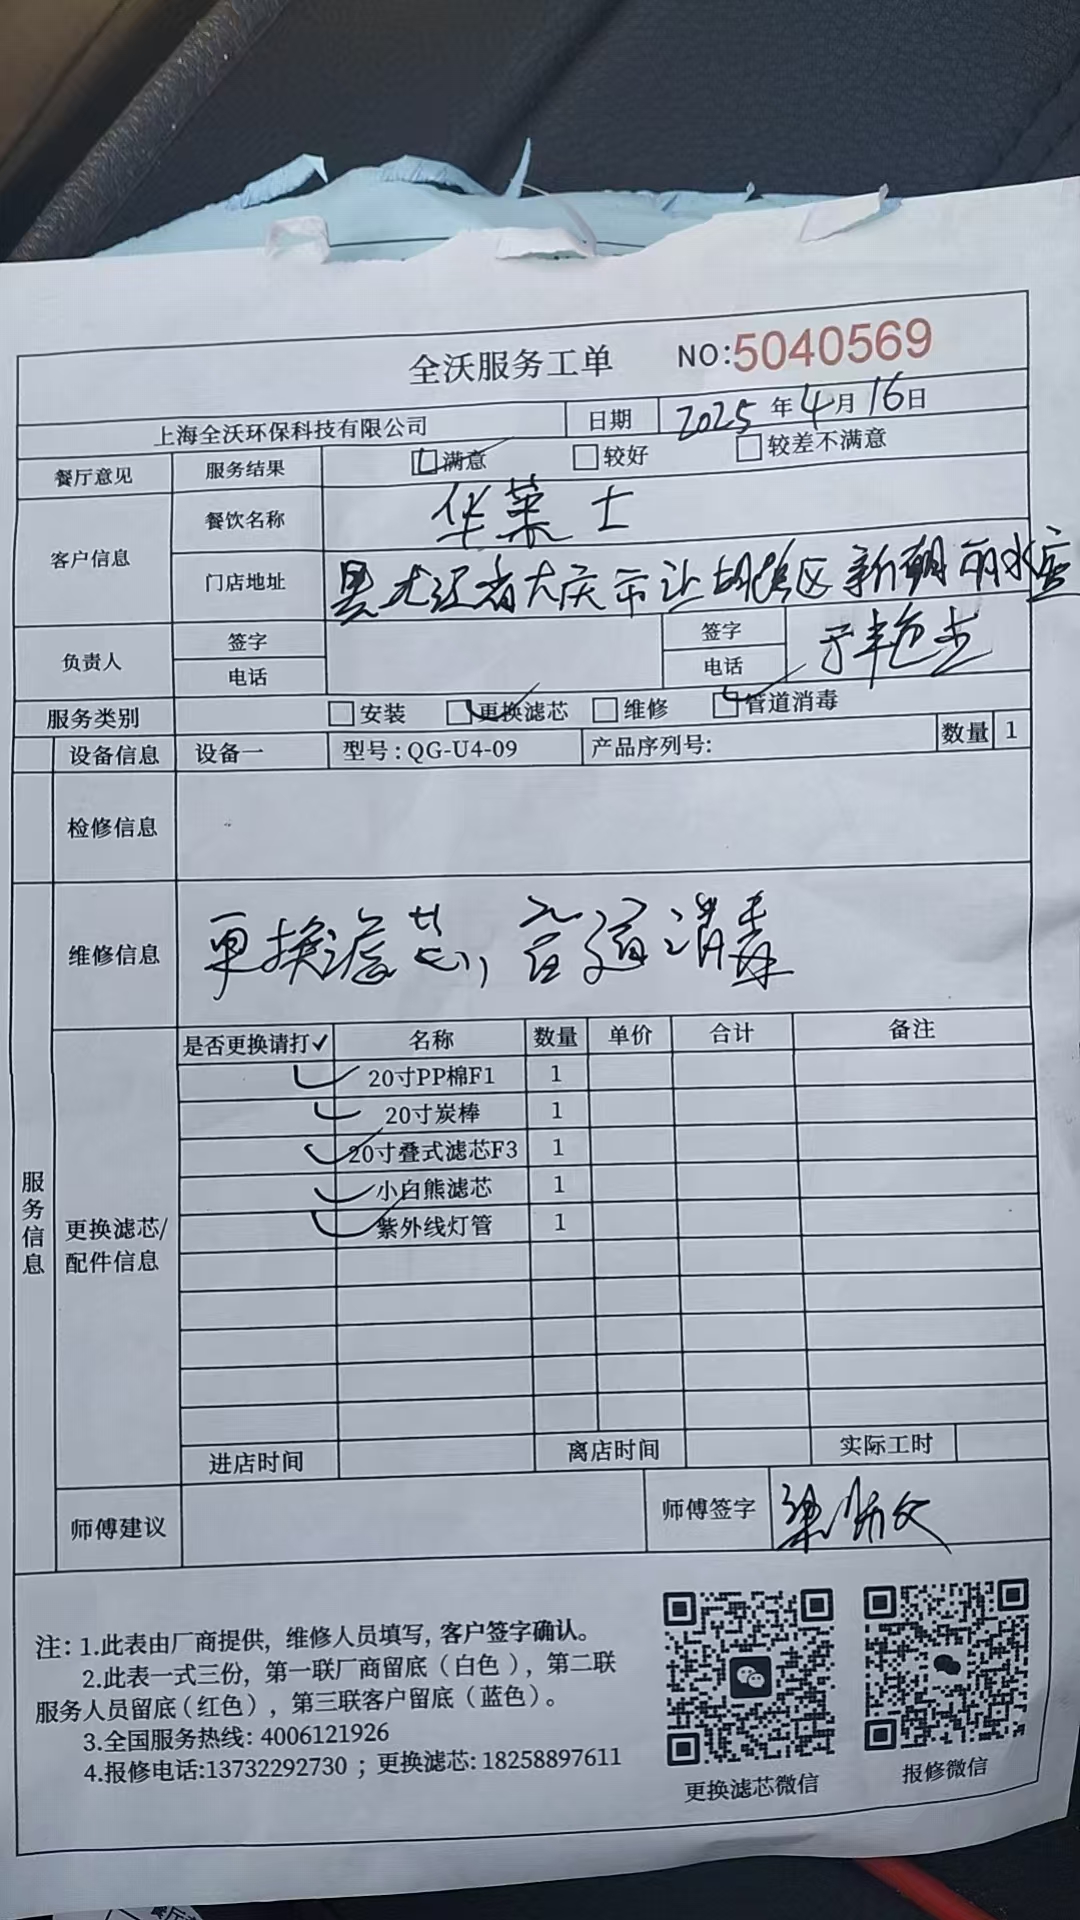 全沃服务工单 NO:5040569
上海全沃环保科技有限公司 日期 2025年4月16日
餐厅意见 服务结果 满意 较好 较差不满意
客户信息 餐饮名称 华莱士
门店地址 黑龙江省大庆市让胡路区新朝丽水
负责人 签字 签字 于艳
电话 电话
服务类别 安装 更换滤芯 维修 管道消毒
设备信息 设备一 型号:QG-U4-09 产品序列号: 数量 1
检修信息
维修信息 更换滤芯,管道消毒
服务信息
更换滤芯/配件信息
是否更换请打✓ 名称 数量 单价 合计 备注
✓ 20寸PP棉F1 1
✓ 20寸炭棒 1
✓ 20寸叠式滤芯F3 1
✓ 小白熊滤芯 1
✓ 紫外线灯管 1
进店时间 离店时间 实际工时
师傅建议 师傅签字 梁
注:1.此表由厂商提供,维修人员填写,客户签字确认。
2.此表一式三份,第一联厂商留底(白色),第二联
服务人员留底(红色),第三联客户留底(蓝色)。
3.全国服务热线:4006121926
4.报修电话:13732292730;更换滤芯:18258897611
更换滤芯微信 报修微信